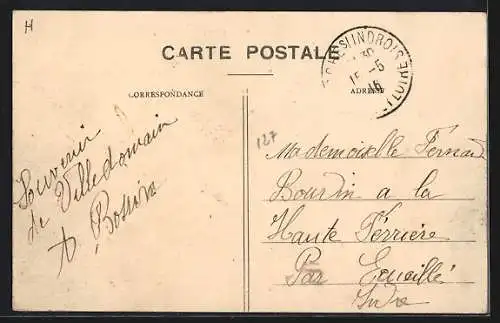 H
CARTE POSTALE
CORRESPONDANCE
ADRESSE
INDROIS
15-5
16
127
Souvenir
de Villedomain
Mademoiselle Fernand
Bourdin a la
Haute Ferriere
Par Ecueillé
Indre